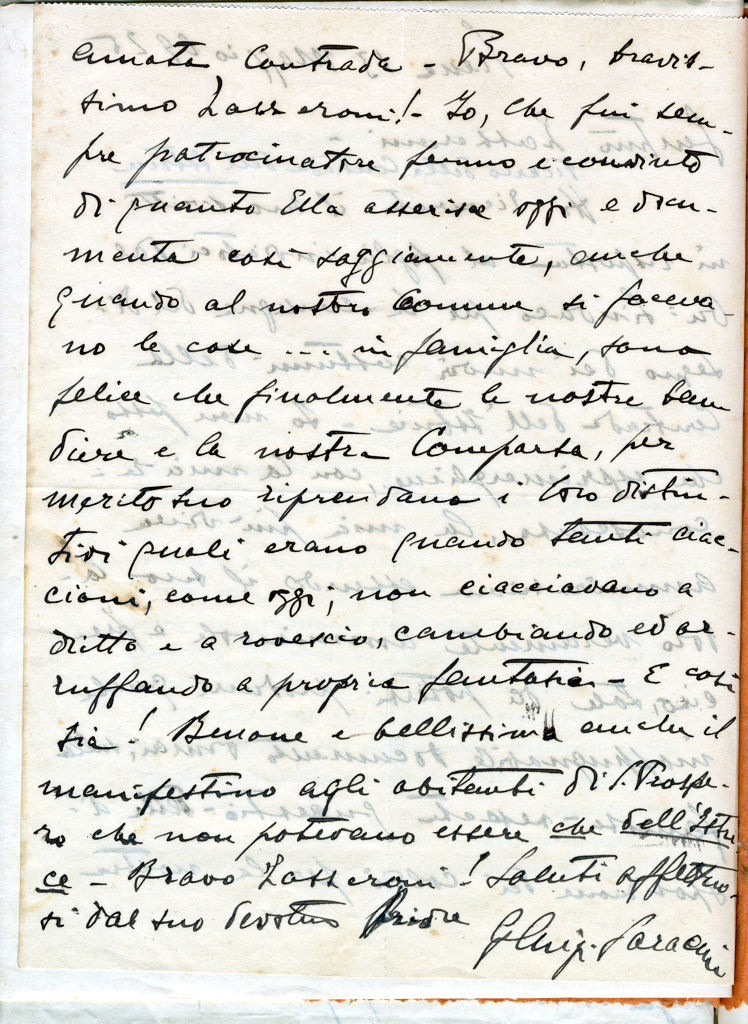 amata Contrada - Bravo, bravis-
simo Zazzeroni! - Io, che fui sem-
pre patrocinatore fermo e convinto
di quanto Ella asserisce oggi e docu-
menta così saggiamente, anche
quando al nostro Comune si faceva-
no le cose .... in famiglia, sono
felice che finalmente le nostre ban
diere e la nostra Comparsa, per
merito suo riprendano i loro distin-
tivi quali erano quando tanti ciac-
cioni, come oggi, non ciacciavano a
dritto e a rovescio, cambiando ed ar-
ruffando a propria fantasia - E così
sia! Benone e bellissimo anche il
manifestino agli abitanti di S. Prospe-
ro che non potevano essere che dell'Istri-
ce - Bravo Zazzeroni! Saluti affettuo-
si dal suo devotmo Priore